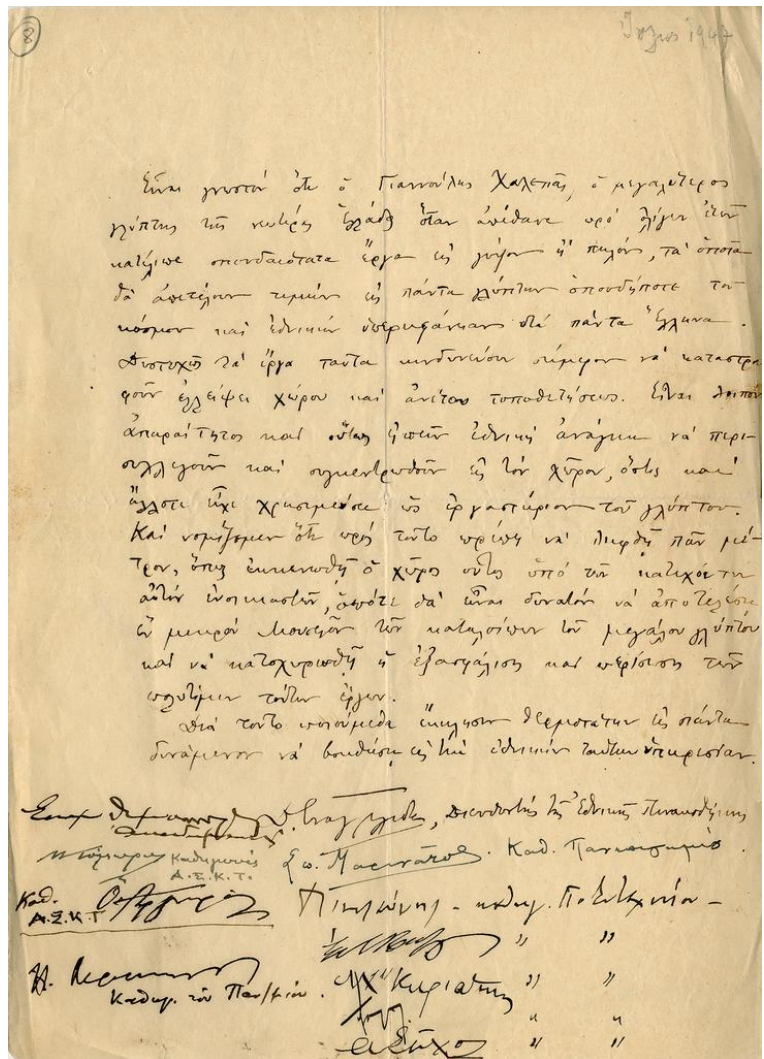 8
Ἰούλιος 1947
Εἶναι γνωστόν ὅτι ὁ Γιαννούλης Χαλεπᾶς, ὁ μεγαλύτερος
γλύπτης τῆς νεωτέρας Ἑλλάδος ὅταν ἀπέθανε πρό ὀλίγων ἐτῶν
κατέλιπε σπουδαιότατα ἔργα εἰς γύψον ἤ πηλόν, τά ὁποῖα
θά ἀπετέλουν τιμήν εἰς πάντα γλύπτην ὁπουδήποτε τοῦ
κόσμου καί ἐθνικήν ὑπερηφάνειαν διά πάντα Ἕλληνα.
Δυστυχῶς τά ἔργα ταῦτα κινδυνεύουν σήμερον νά καταστρα
φοῦν ἐλλείψει χώρου καί ἀνέτου τοποθετήσεως. Εἶναι λοιπόν
ἀπαραίτητος καί οὕτως εἰπεῖν ἐθνική ἀνάγκη νά περι
συλλεγοῦν καί συγκεντρωθοῦν εἰς τόν χῶρον, ὅστις καί
ἄλλοτε εἶχε χρησιμεύσει ὡς ἐργαστήριον τοῦ γλύπτου.
Καί νομίζομεν ὅτι πρός τοῦτο πρέπει νά ληφθῇ πᾶν μέ-
τρον, ὅπως ἐκκενωθῇ ὁ χῶρος οὗτος ὑπό τῶν κατεχόντων
αὐτόν ἐνοικιαστῶν, ὁπότε θά εἶναι δυνατόν νά ἀποτελέσῃ
ἕν μικρόν Μουσεῖον τῶν καταλοίπων τοῦ μεγάλου γλύπτου
καί νά κατοχυρωθῇ ἡ ἐξασφάλισις καί περίσωσις τῶν
πολυτίμων τούτων ἔργων.
Διά τοῦτο ποιούμεθα ἔκκλησιν θερμοτάτην εἰς πάντα
δυνάμενον νά βοηθήσῃ εἰς τήν ἐθνικήν ταύτην ὑπηρεσίαν.
διευθυντής τῆς Ἐθνικῆς Πινακοθήκης
Καθηγητής Σπ. Μαρινᾶτος. Καθ. Πανεπιστημίου.
Α.Σ.Κ.Τ.
Καθ.
Α.Σ.Κ.Τ
καθηγ. Πολυτεχνείου -
" "
Καθηγ. τοῦ Παν/μίου. Κυριαζῆς " "
" "
" "